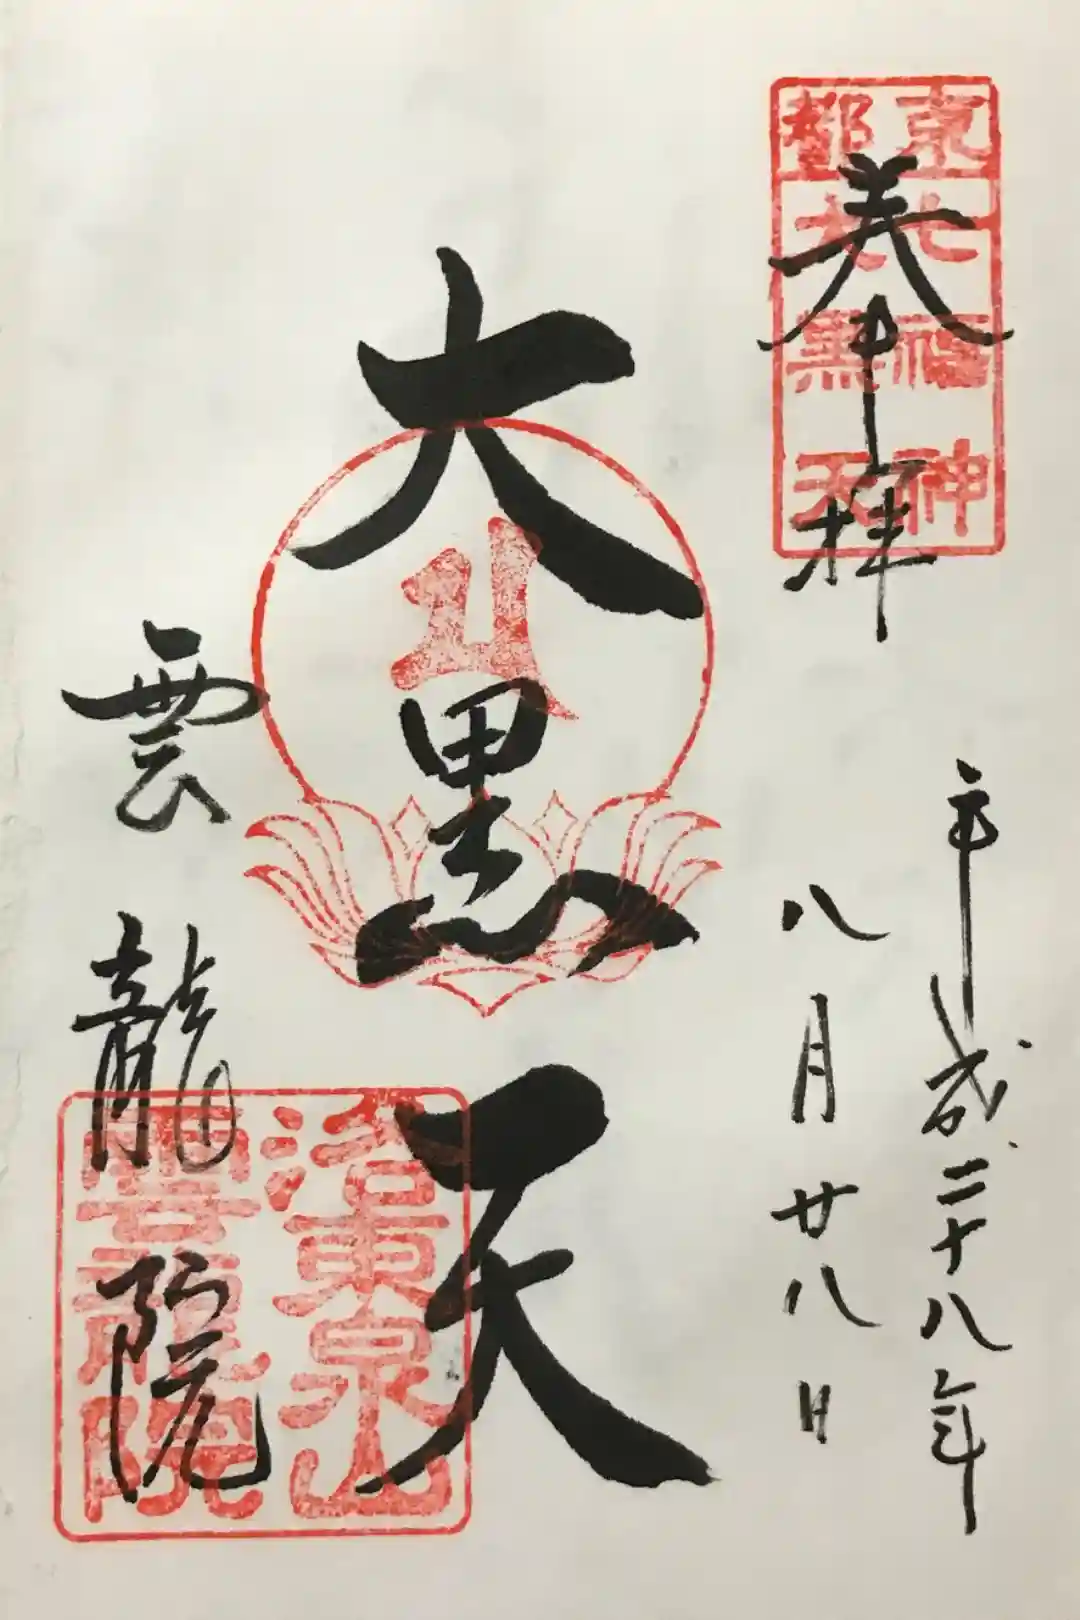 奉拝
京都
七福神
大黒天
平成二十八年
八月廿八日
大黒天
雲龍院
洛東泉山
雲龍院